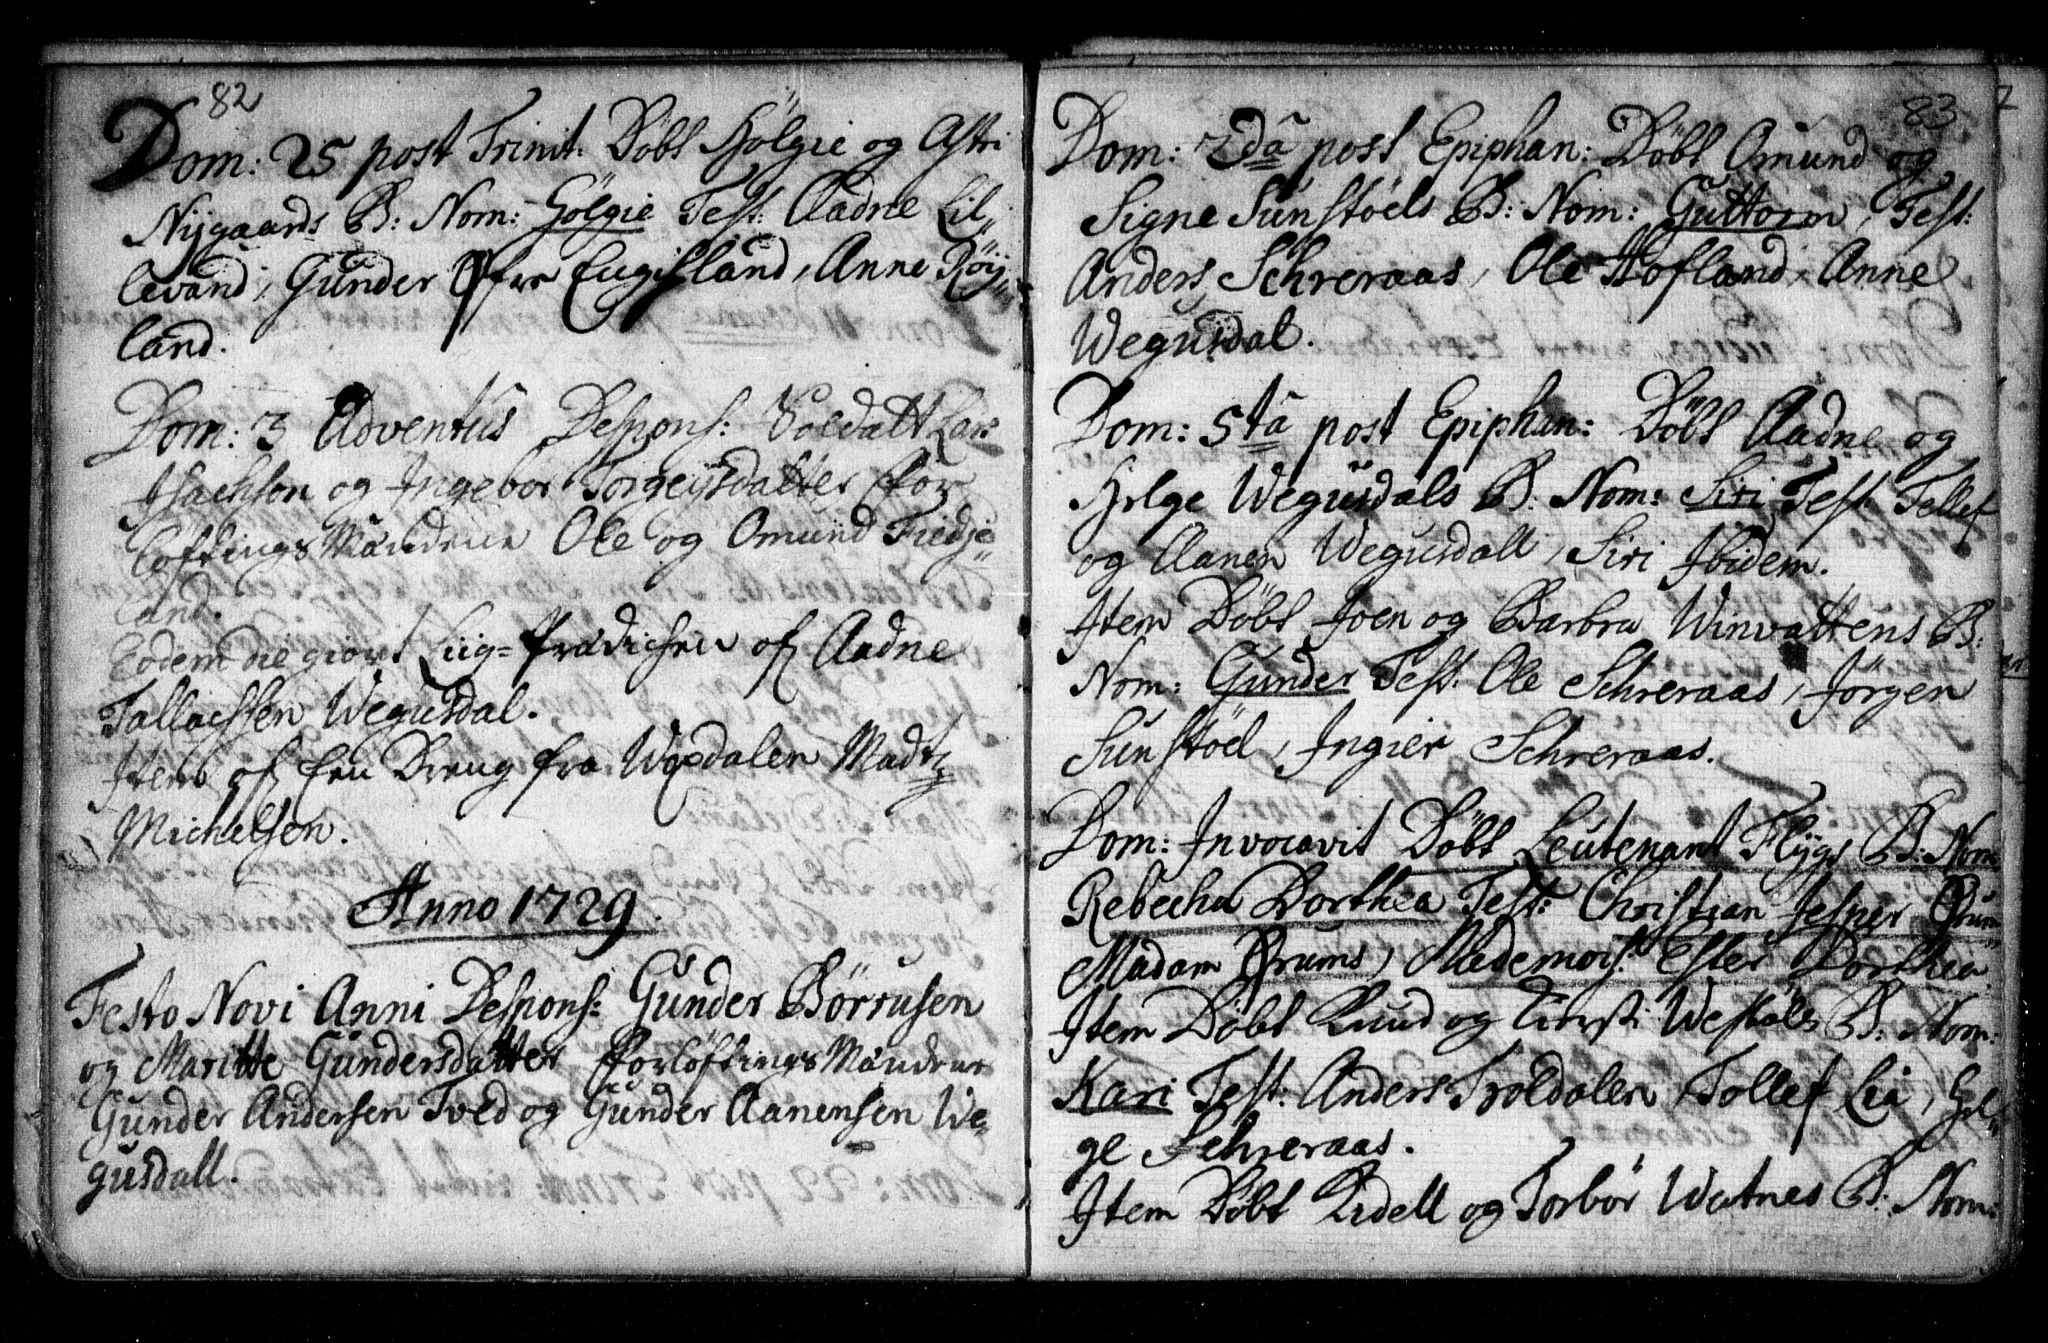 82
Dom: 25 post Trinit: Döbt Hölgie og Astri
Nijgaards B: Nom: Hölgie Test: Aadne Lil„
levand, Gunder Öfre Eugisland, Anne Röij„
land.
Dom: 3 Adventûs Despons: Soldatt Lars
Isachson og Ingebor Torgeijsdatter, for„
löftings Mændene Ole og Omund Fiedje„
land.
Eodem die giort Liig-Prædichen of Aadne
Tallachsen Wegusdal.
Item of en Dreng fra Wosdalen Madtz
Michelsen.
Anno 1729.
Festo Novi Anni Despons: Gunder Börrusen
og Maritte Gundersdatter Forlöftings Mændene
Gunder Andersen Tved og Gunder Aanensen We„
gusdall.
83
Dom: 2dâ post Epiphan: Döbt Omund og
Signe Sunstöels B: Nom: Guttorm, Test:
Anders Schreraas, Ole Hofland, Anne
Wegusdal.
Dom: 5tâ post Epiphan: Döbt Aadne og
Helge Wegusdals B: Nom: Siri Test Tellef
og Aanen Wegusdall, Siri Ibidem.
Item Döbt Joen og Barbra Winvattens B:
Nom: Gunder Test: Ole Schreraas, Jörgen
Sunstöel, Ingier Schreraas.
Dom: Invocavit Döbt Leutenant Flÿgs B: Nom
Rebecha Dorthea Test: Christian Jesper Ørum„
Madam Ørums, Mademois: Ester Dorthea.
Item Döbt Knud og Kirsti Westöls B: Nom:
Kari Test: Anders Troldalen, Tollef Lia, Hel„
ge Schreraas.
Item Döbt Kidell og Torbör Watnes B: Nom: